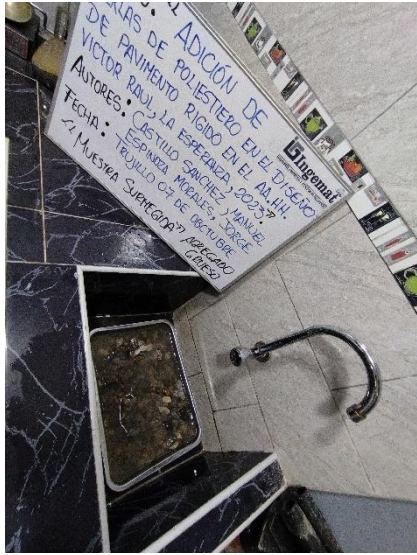 ADICIÓN DE
PERLAS DE POLIESTIERO EN EL DISEÑO
DE PAVIMENTO RIGIDO EN EL AA.HH.
VICTOR RAUL, LA ESPERANZA, 2023"
AUTORES: CASTILLO SANCHEZ, MANUEL
ESPINOZA MORALES, JORGE
FECHA: TRUJILLO 07 DE OBCTUBRE
"MUESTRA SUMEGIDA" AGREGADO
GRUESO
Ingemat